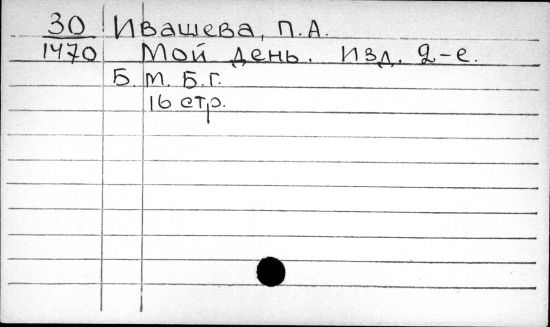 30 Ивашева, П.А.
1470 Мой день. Изд. 2-е.
Б.М. Б.г.
16 стр.